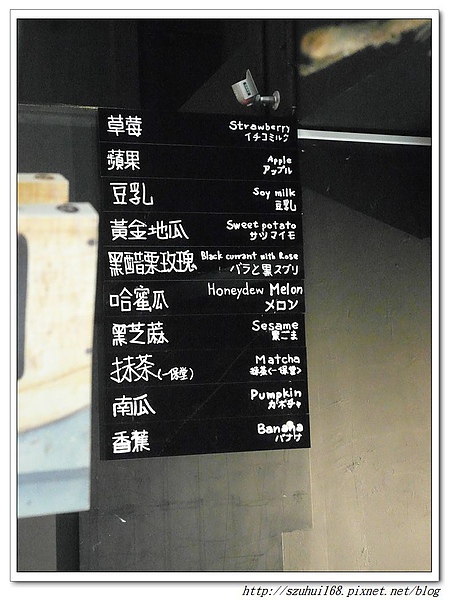 草莓
Strawberry
イチゴミルク
蘋果
Apple
アップル
豆乳
Soy milk
豆乳
黃金地瓜
Sweet potato
サツマイモ
黑醋栗玫瑰
Black currant with Rose
バラと黒スグリ
哈蜜瓜
Honeydew Melon
メロン
黑芝蔴
Sesame
黒ごま
抹茶(一保堂)
Matcha
抹茶<一保堂>
南瓜
Pumpkin
カボチャ
香蕉
Banana
バナナ
http://szuhui168.pixnet.net/blog